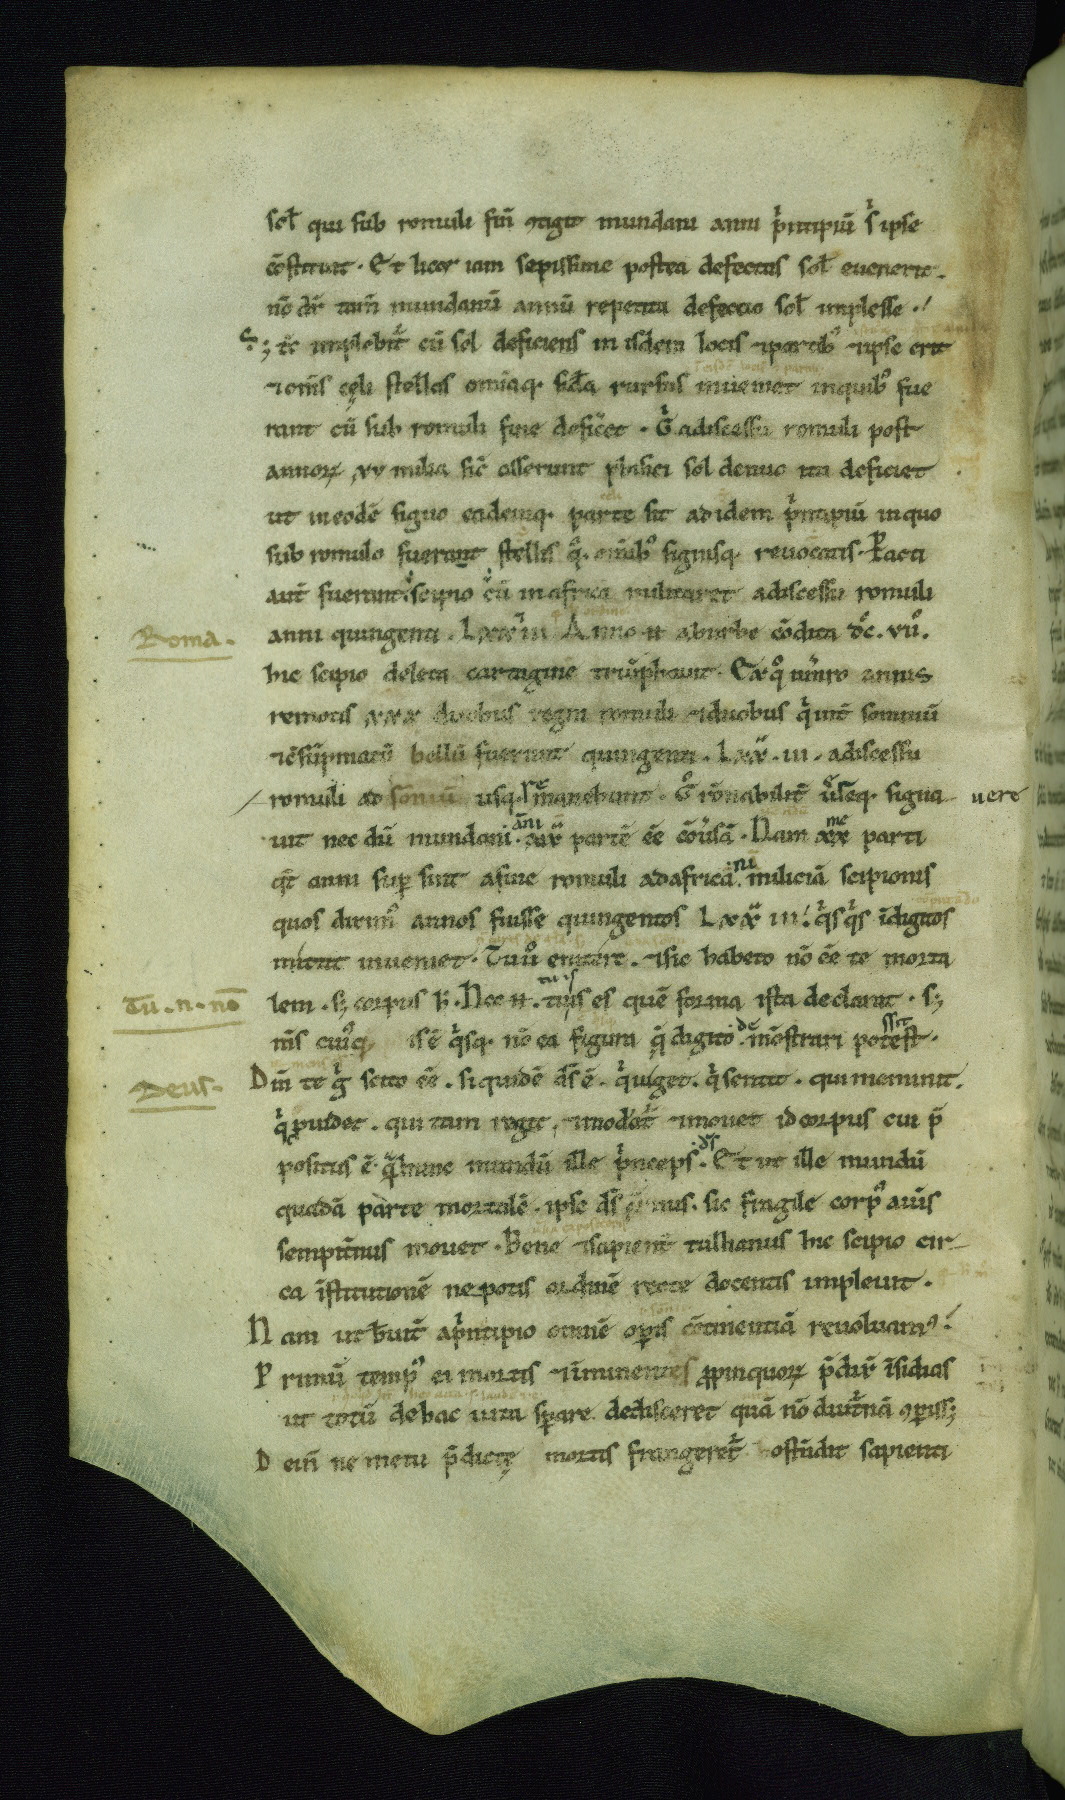 sol̅ qui sub romuli fin̅ ɔtigit mundani anni pͥncipiu̅ sͥ ipse
co̅stituit. Et licet iam sepissime postea defectus sol̅ euenerit.
no̅ dr̅ tam̅ mundanu̅ annu̅ repetita defectio sol̅ implesse.
s; tc̅ implebit᷑ cu̅ sol deficiens in isdem locis ⁊partib᷒ ⁊ipse erit
⁊om̅s cęli stellas omiaq. sid̅a rursus inueniet inquib᷒ fue
rant cu̅ sub romuli fine deficet. Gͥ adiscessu romuli post
annoꝝ xv milia sic̅ asserunt phisici sol denuo ita deficiet
ut ineode̅ signo eademq. parte sit adidem pͥncipiu̅ inquo
sub romulo fuerant stellis qͦ. omib᷒ signisq. reuocatis. Pacti
aut̅ fuerant scipio cu̅ in africa militaret adiscessu romuli
Roma.
anni quingenti. Lxxͣiii Anno n aburbe co̅dita dc̅. vii͂.
hic scipio deleta cartagine triu̅phauit. Exqͦ nu̅ro annis
remotis xxx duobus regni romuli ⁊duobus qͥ int̅ somniu̅
⁊co̅su̅pmatu̅ bellu̅ fuerunt quingenti. Lxx. iii. adiscessu
romuli ad so̅niu̅ usq. remanebunt. Gͦ ro̅nabilit̅ u̅eq. signa uere
uit nec du̅ mundani anni xx parte̅ ee̅ co̅uˢa̅. Nam xx me parti
qͥt anni suꝑ sint afine romuli adafrica̅ milicia̅ scipionis
quos dixim᷒ annos fuisse quingentos Lxx iii. qͥsqͥs i̅digitos
mittit inueniet. Tuu͂ enitere. ⁊sic habeto no̅ ee̅ te morta
Tu̅. n. no̅
lem. s; corpus h̅. Nec n. tu is es que̅ forma ista declarat. s;
m̅s cui᷒q. is e̅ qͥsq. no̅ ea figura q̨ digito de mo̅strari potest.
Deus.
Dm̅ te gͥ scito ee̅. siquide̅ ds̅ e̅. qͥ uiget. qͥ sentit. qui meminit.
qͥ ꝓuidet. qui tam regit. ⁊modat᷑ ⁊mouet id corpus cui p̅
positus e̅. qͣ hunc mundu̅ ille pͥnceps ds̅. Et ut ille mundu̅
quada̅ parte mortale̅. ipse ds̅ et̅nus. sic fragile corp᷒ ani̅s
sempit̅nus mouet. Bene ⁊sapient̅ tullianus hic scipio cir-
ca i̅stitutione̅ nepotis ordine̅ recte docentis impleuit.
Nam ut breuit̅ apͥncipio omne̅ opis co̅tinentia̅ reuoluam᷒.
Primu̅ temp᷒ ei mortis ⁊i̅minentes ꝓpinquoꝝ p̅dix̅ i̅sidias
ut totu̅ dehac uita sꝑare dedisceret qua̅ no̅ diut᷑na̅ ɔꝑiss;
Dein̅ ne metu p̅dictę mortis frangeret᷑ oste̅dit sapienti